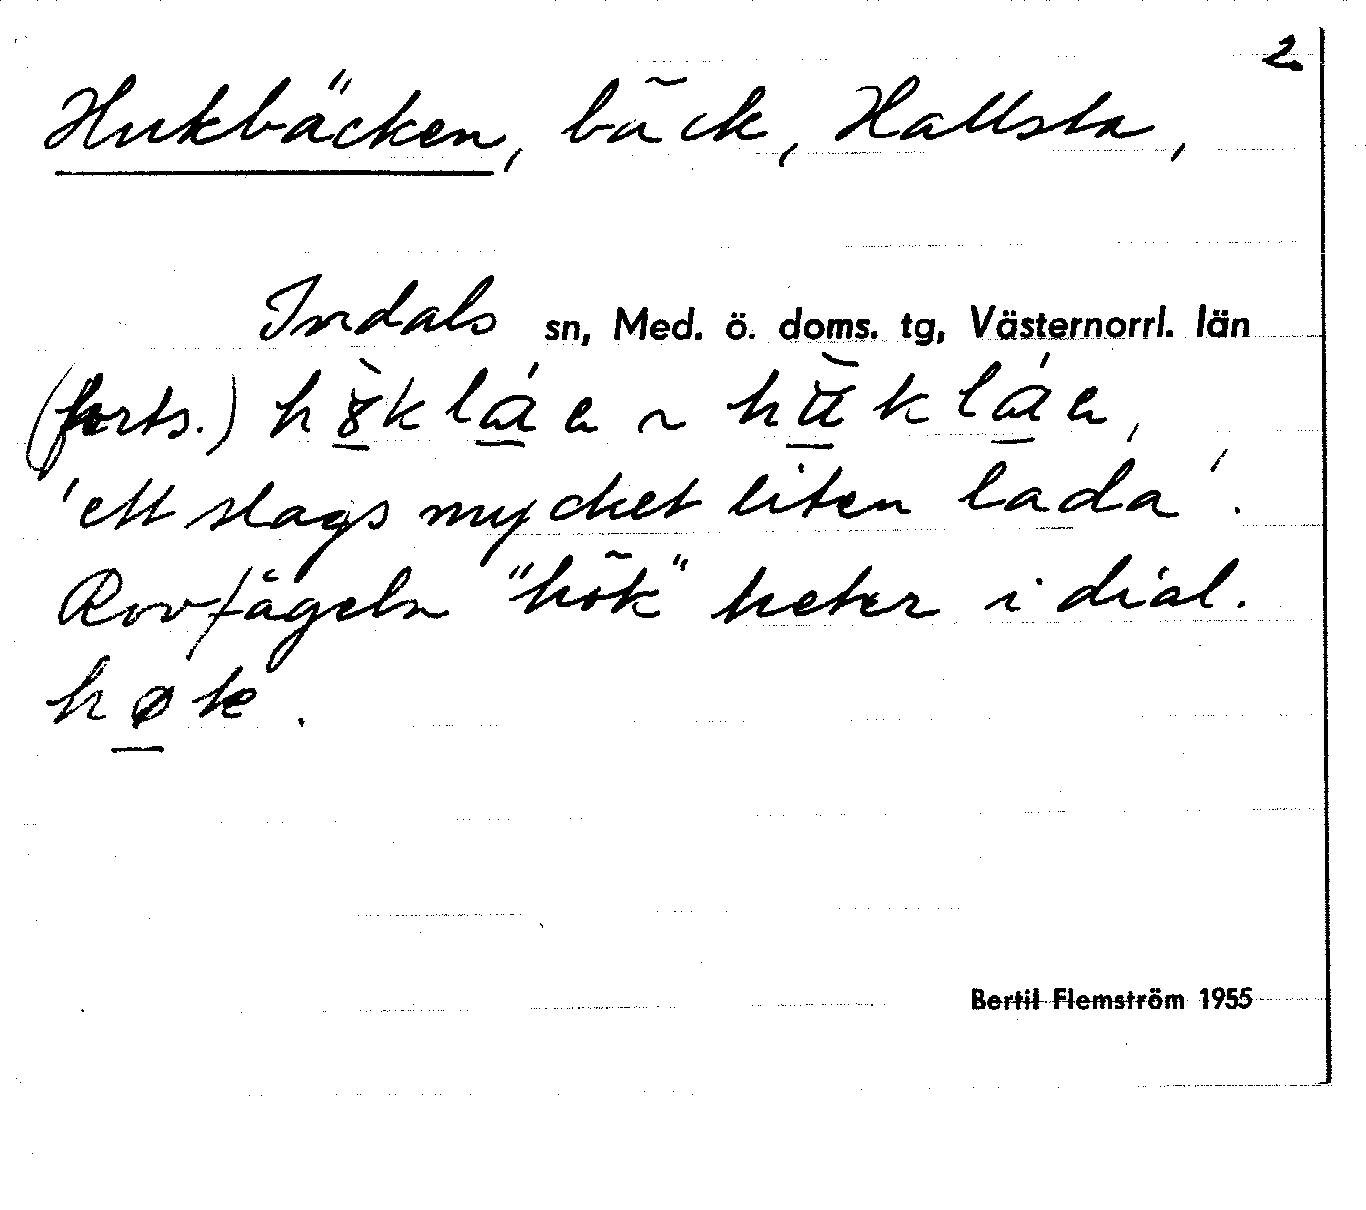 2.
Hukbäcken, bäck, Hallsta,
Indals sn, Med. ö. doms. tg, Västernorrl. län
(forts.) h8̠̀klá̠a ~ hù̠klá̠a,
'ett slags mycket liten lada'.
Rovfågeln "hök" heter i dial.
hø̠k.
Bertil Flemström 1955